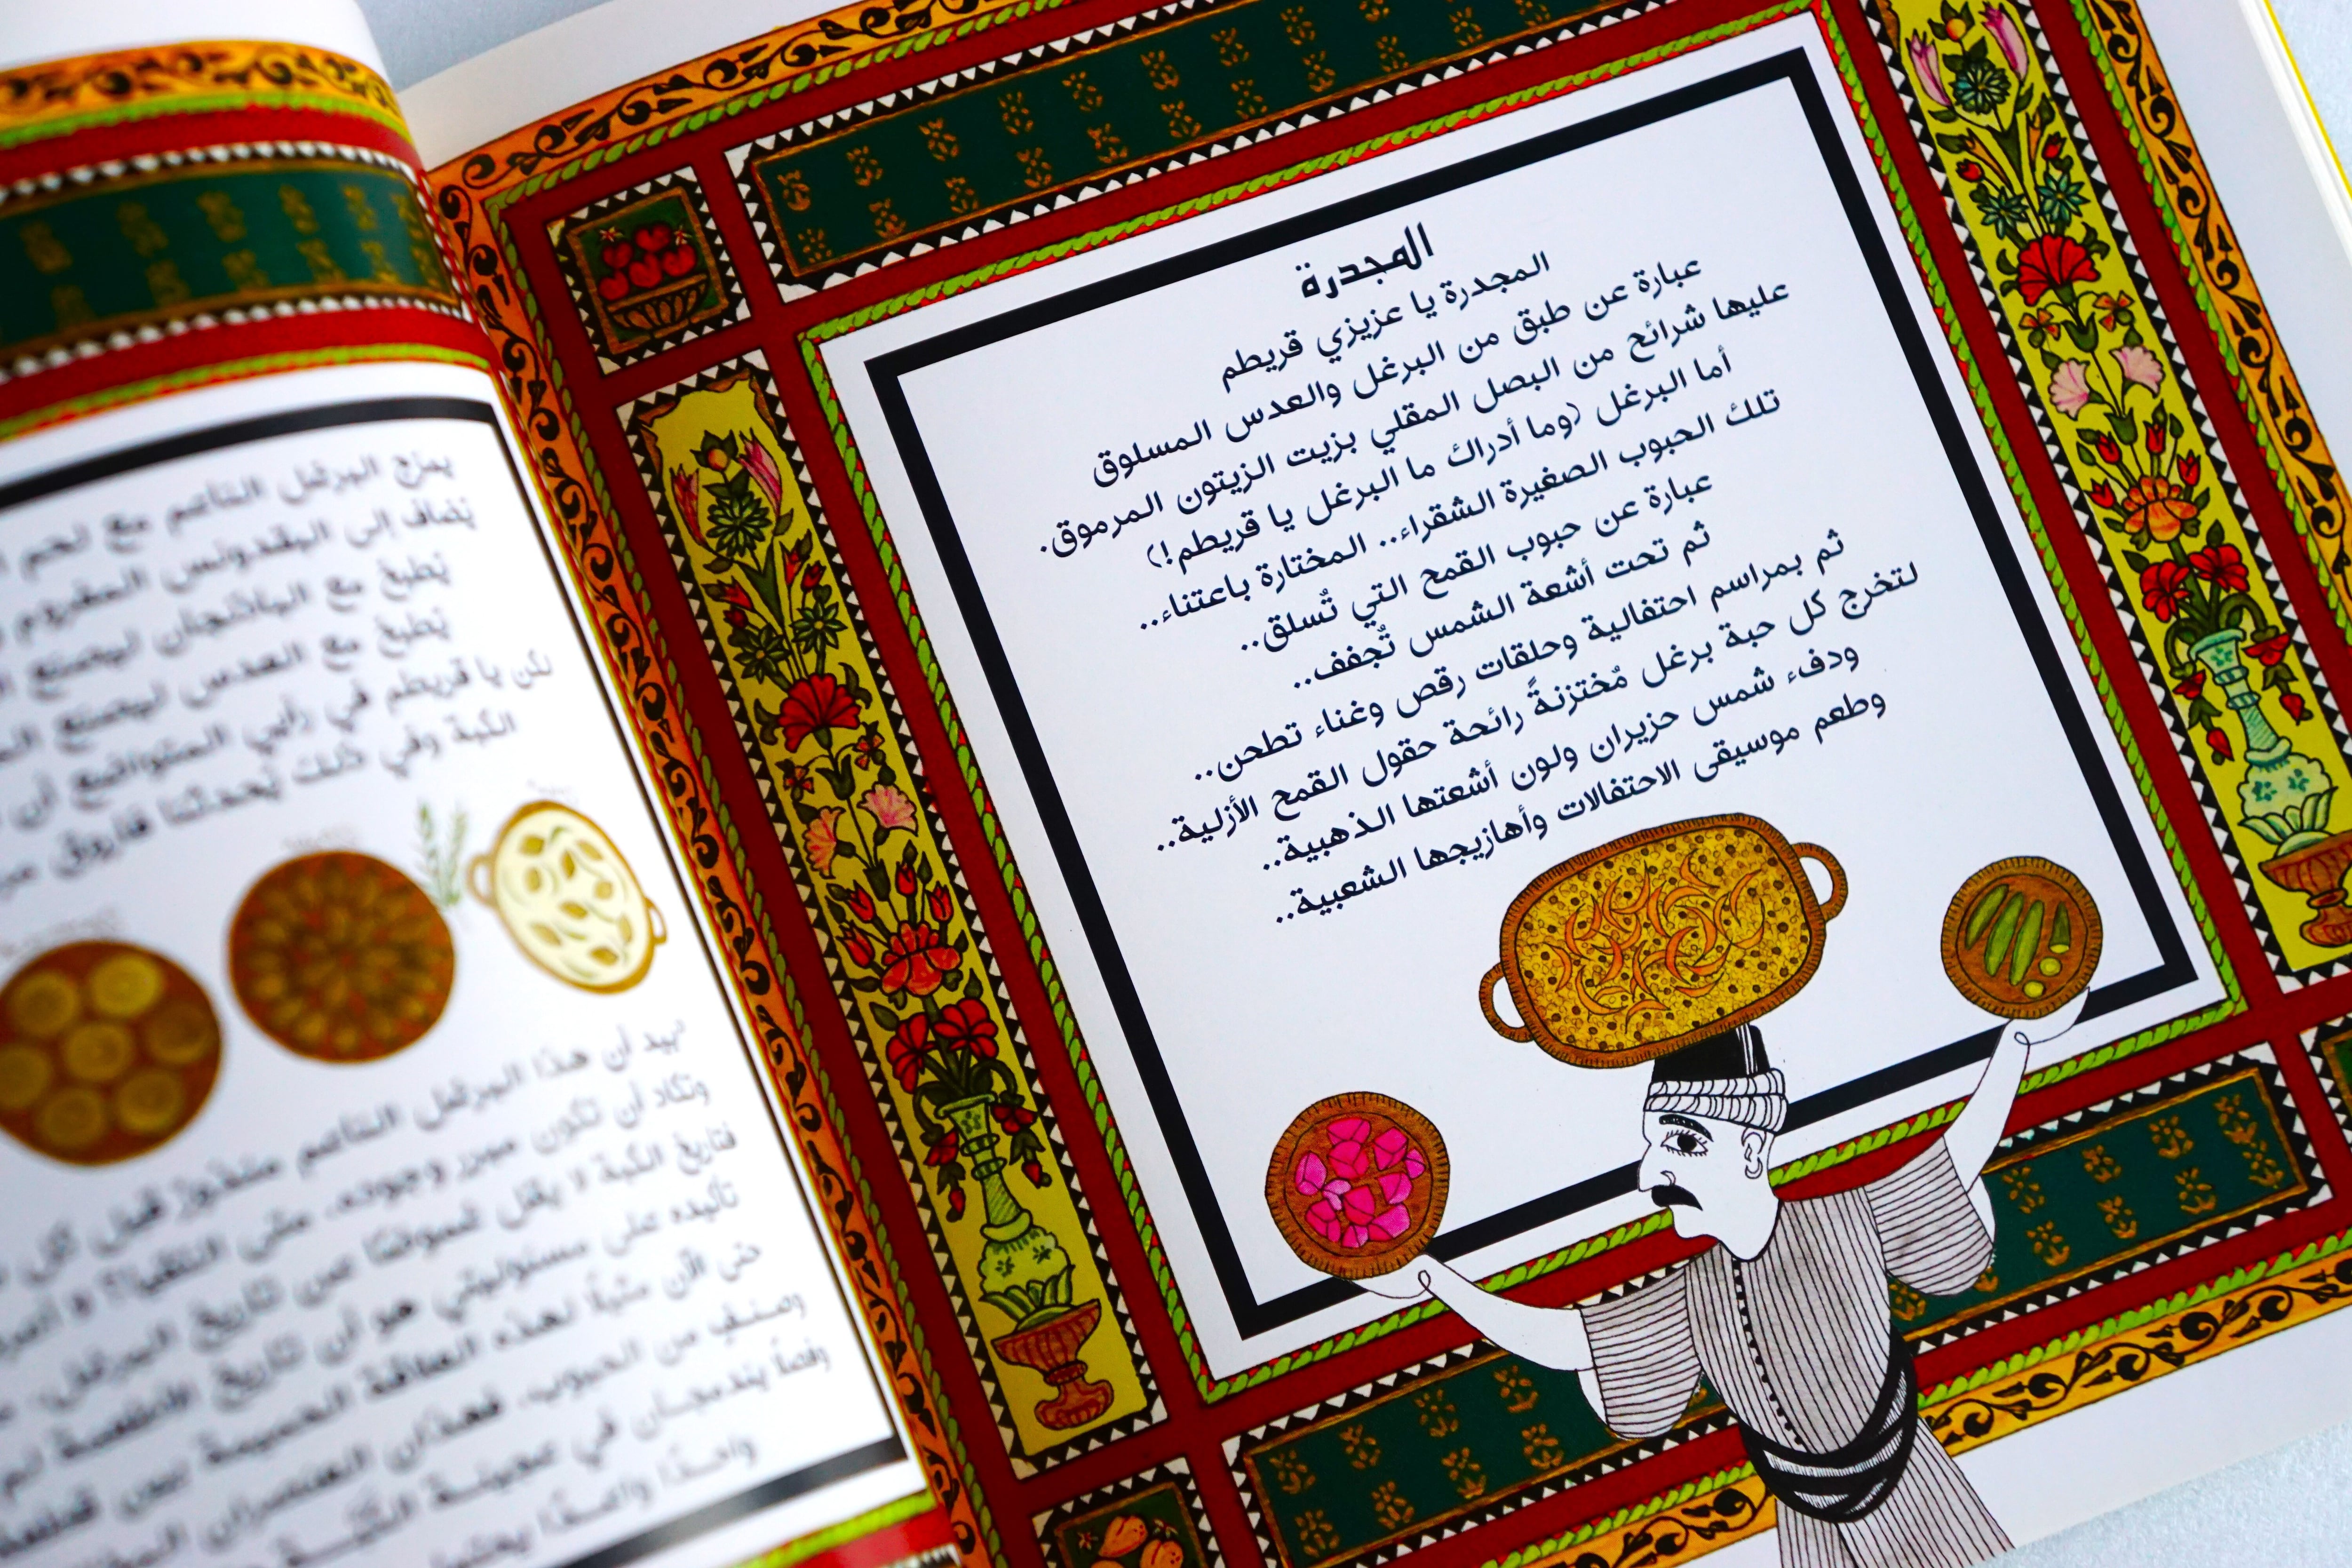 المجدرة
المجدرة يا عزيزي قريطم
عبارة عن طبق من البرغل والعدس المسلوق
عليها شرائح من البصل المقلي بزيت الزيتون المرموق.
أما البرغل (وما أدراك ما البرغل يا قريطم!)
تلك الحبوب الصغيرة الشقراء.. المختارة باعتناء..
عبارة عن حبوب القمح التي تُسلق..
ثم تحت أشعة الشمس تُجفف..
ثم بمراسم احتفالية وحلقات رقص وغناء تطحن..
لتخرج كل حبة برغل مُختزنةً رائحة حقول القمح الأزلية..
ودفء شمس حزيران ولون أشعتها الذهبية..
وطعم موسيقى الاحتفالات وأهازيجها الشعبية..
يمزج البرغل الناعم مع لحم
يُضاف إلى البقدونس المفروم
يُطبخ مع الباذنجان ليصنع
يُطبخ مع العدس ليصنع
لكن يا قريطم في رأيي المتواضع أن
الكبة وفي ذلك يُحدثنا فاروق
بيد أن هذا البرغل الناعم منذورٌ قبل كل
وتكاد أن تكون مبرر وجوده، متى التقيا؟
فتاريخ الكبة لا يقل غموضًا عن تاريخ البرغل،
تأكيده على مسئوليتي هو أن تاريخ الأطعمة لم
حتى الآن مثيلًا لهذه العلاقة الحميمة بين
وصنفٍ من الحبوب، فهذان العنصران
رقصًا يندمجان في عجينة الكبة
واحدًا